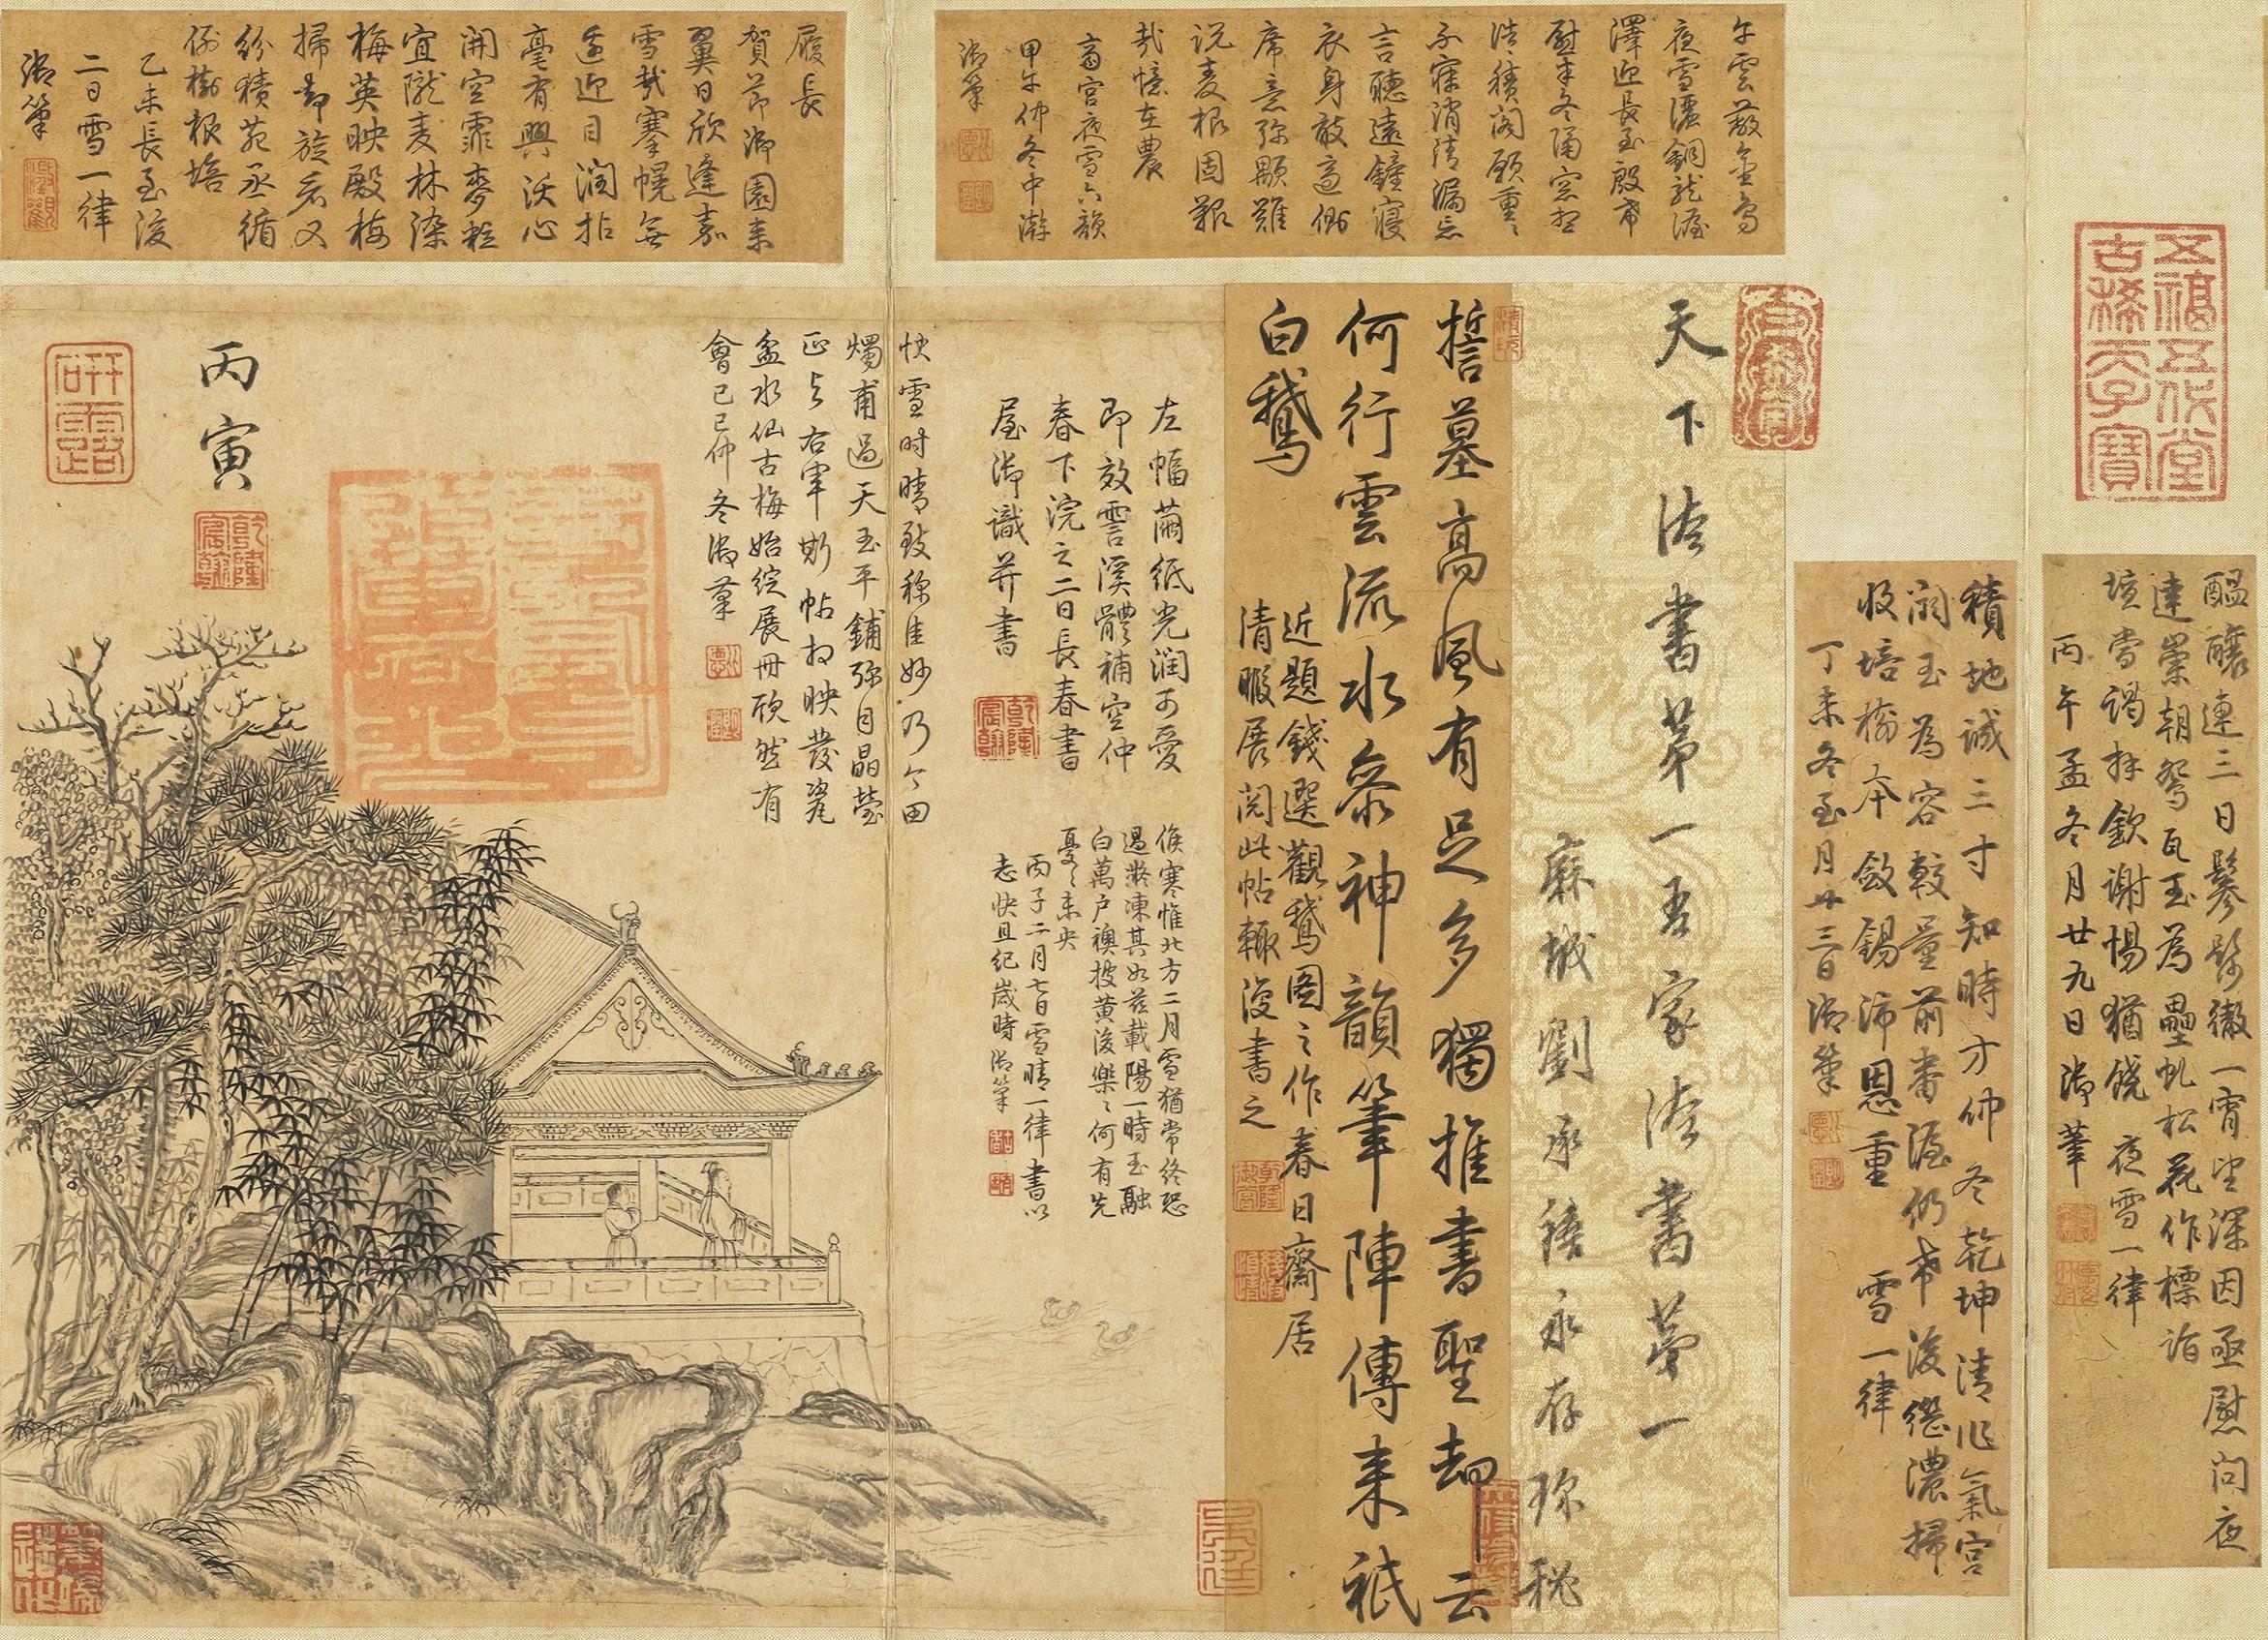 五福五代堂
古稀天子寶
醞釀連三日鬖髿徹一宵望深因亟慰問夜
達崇朝鴛瓦玉為壘虬松花作標詣
壇當謁拜欽謝惕猶饒 夜雪一律
丙午孟冬月廿九日御筆
積地誠三寸知時方仲冬乾坤清作氣宮
闕玉為容較量前番渥仍希後繼濃掃
收培樹本斂錫沛恩重 雪一律
丁未冬至月廿三日御筆
天下法書第一吾家法書第一
麻城劉承禧永存珍秘
誓墓高風有足多獨推書聖却云
何行雲流水參神韻筆陣傳來祇
白鵝
近題錢選觀鵝圖之作春日齋居
清暇展閱此帖輒復書之
夜雪濃銅龍渥
澤迎長至殷希
慰半冬隔窓想
積閣願重重
不寐消清漏忘
言聽遠鐘寢
衣身敢適側
席意彌顒難
說麦根固艱
哉憶在農
齋宮夜雪六韻
甲午仲冬中澣
御筆
左幅繭紙光潤可愛
即效雪溪體補空仲
春下浣之二日長春書
屋御識并書
乾隆宸翰
候寒惟北方二月雪猶常終恐
過災凍其如茲載陽一時玉融
白萬户襖披黄後樂樂何有先
憂憂未央
丙子二月七日雪晴一律書以
志快且紀歲時御筆
快雪时晴致稱佳妙乃今田
燭甫過天玉平鋪彌目晶瑩
正与右軍斯帖相映發瓷
盆水仙古梅始綻展冊欣然有
會己巳仲冬御筆
履長
賀節御園来
翼日欣逢嘉
雪哉搴幌無
迎目潤拈
毫有興沃心
開空霏麥粒
宜隴麦林染
梅英映殿梅
掃却旋看又
紛積苑丞循
例樹根培
乙未長至後
二日雪一律
御筆
澂觀
丙寅
乾隆宸翰
研露